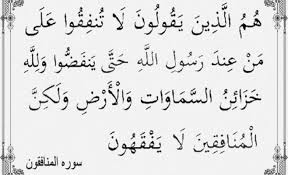 هُمُ الَّذِينَ يَقُولُونَ لَا تُنفِقُوا عَلَى
مَنْ عِندَ رَسُولِ اللَّهِ حَتَّى يَنفَضُّوا وَلِلَّهِ
خَزَائِنُ السَّمَاوَاتِ وَالْأَرْضِ وَلَكِنَّ
الْمُنَافِقِينَ لَا يَفْقَهُونَ
سوره المنافقون